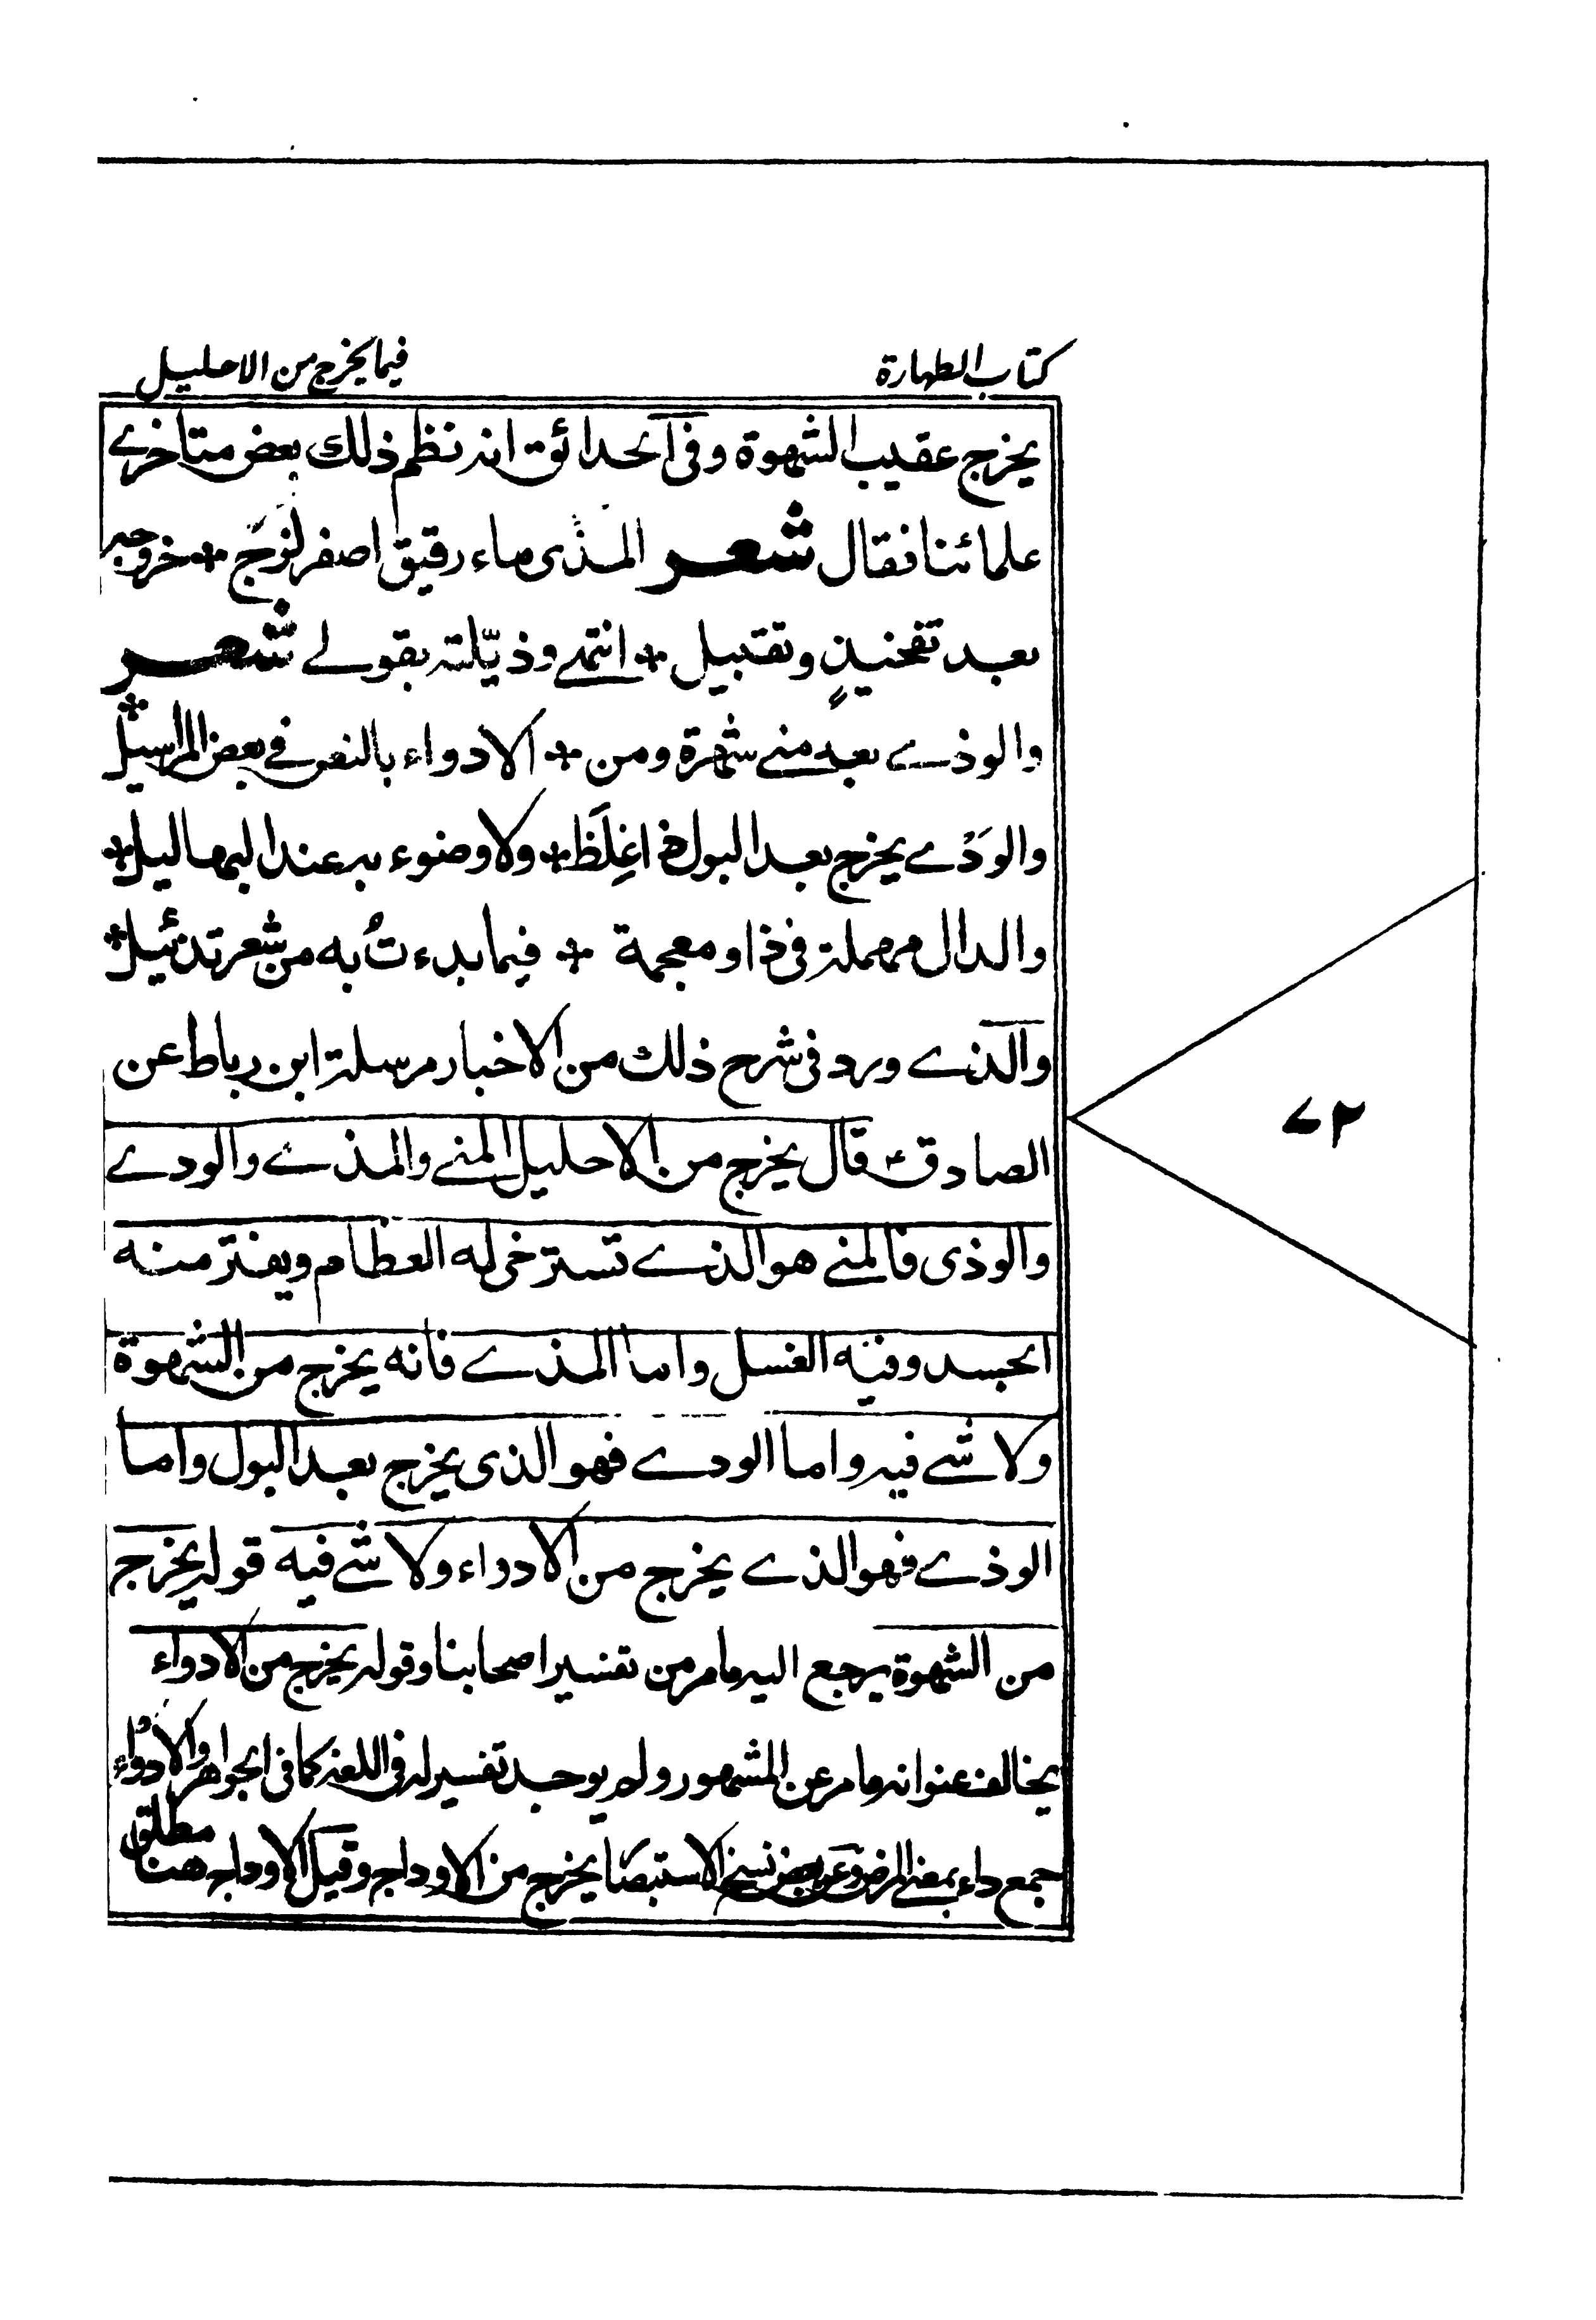 كتاب الطهارة
فيما يخرج من الاحليل
يخرج عقيب الشهوة وفى الحدائق انه نظم ذلك بعض متاخرے
علمائنا فقال شعر المذى ماء رقيق اصفر لزج * خروجه
بعد تفخيذٍ وتقبيل * انتهى وذيّلته بقولے شعر
والوذے بعد منے شهرة ومن * الادواء بالنص فے بعض المراسيل *
والودْے يخرج بعد البول اغلَظ * ولا وضوء به عند البهاليل *
والدال مهملة فى ذا ومعجمة * فيما بدءتُ به من شعر تذئيل *
والذے ورد فى شرح ذلك من الاخبار مرسلة ابن رباط عن
الصادق ع قال يخرج من الاحليل المنے والمذے والودے
والوذى فالمنے هو الذے تسترخى له العظام ويفتر منه
الجسد وفيه الغسل واما المذے فانه يخرج من الشهوة
ولا شے فيه واما الودے فهو الذى يخرج بعد البول واما
الوذے فهو الذے يخرج من الادواء ولا شے فيه قوله يخرج
من الشهوة يرجع اليه مامر من تفسير اصحابنا وقوله يخرج من الادواء
يخالف عنوانه مامر عن المشهور ولم يوجد تفسير له فى اللغة كما فى الجواهر والادواء
جمع داء بمعنے المرض وعن بعض نسخ الاستبصار يخرج من الاوداج وقيل الاوداج هنا مطلق
٧٢